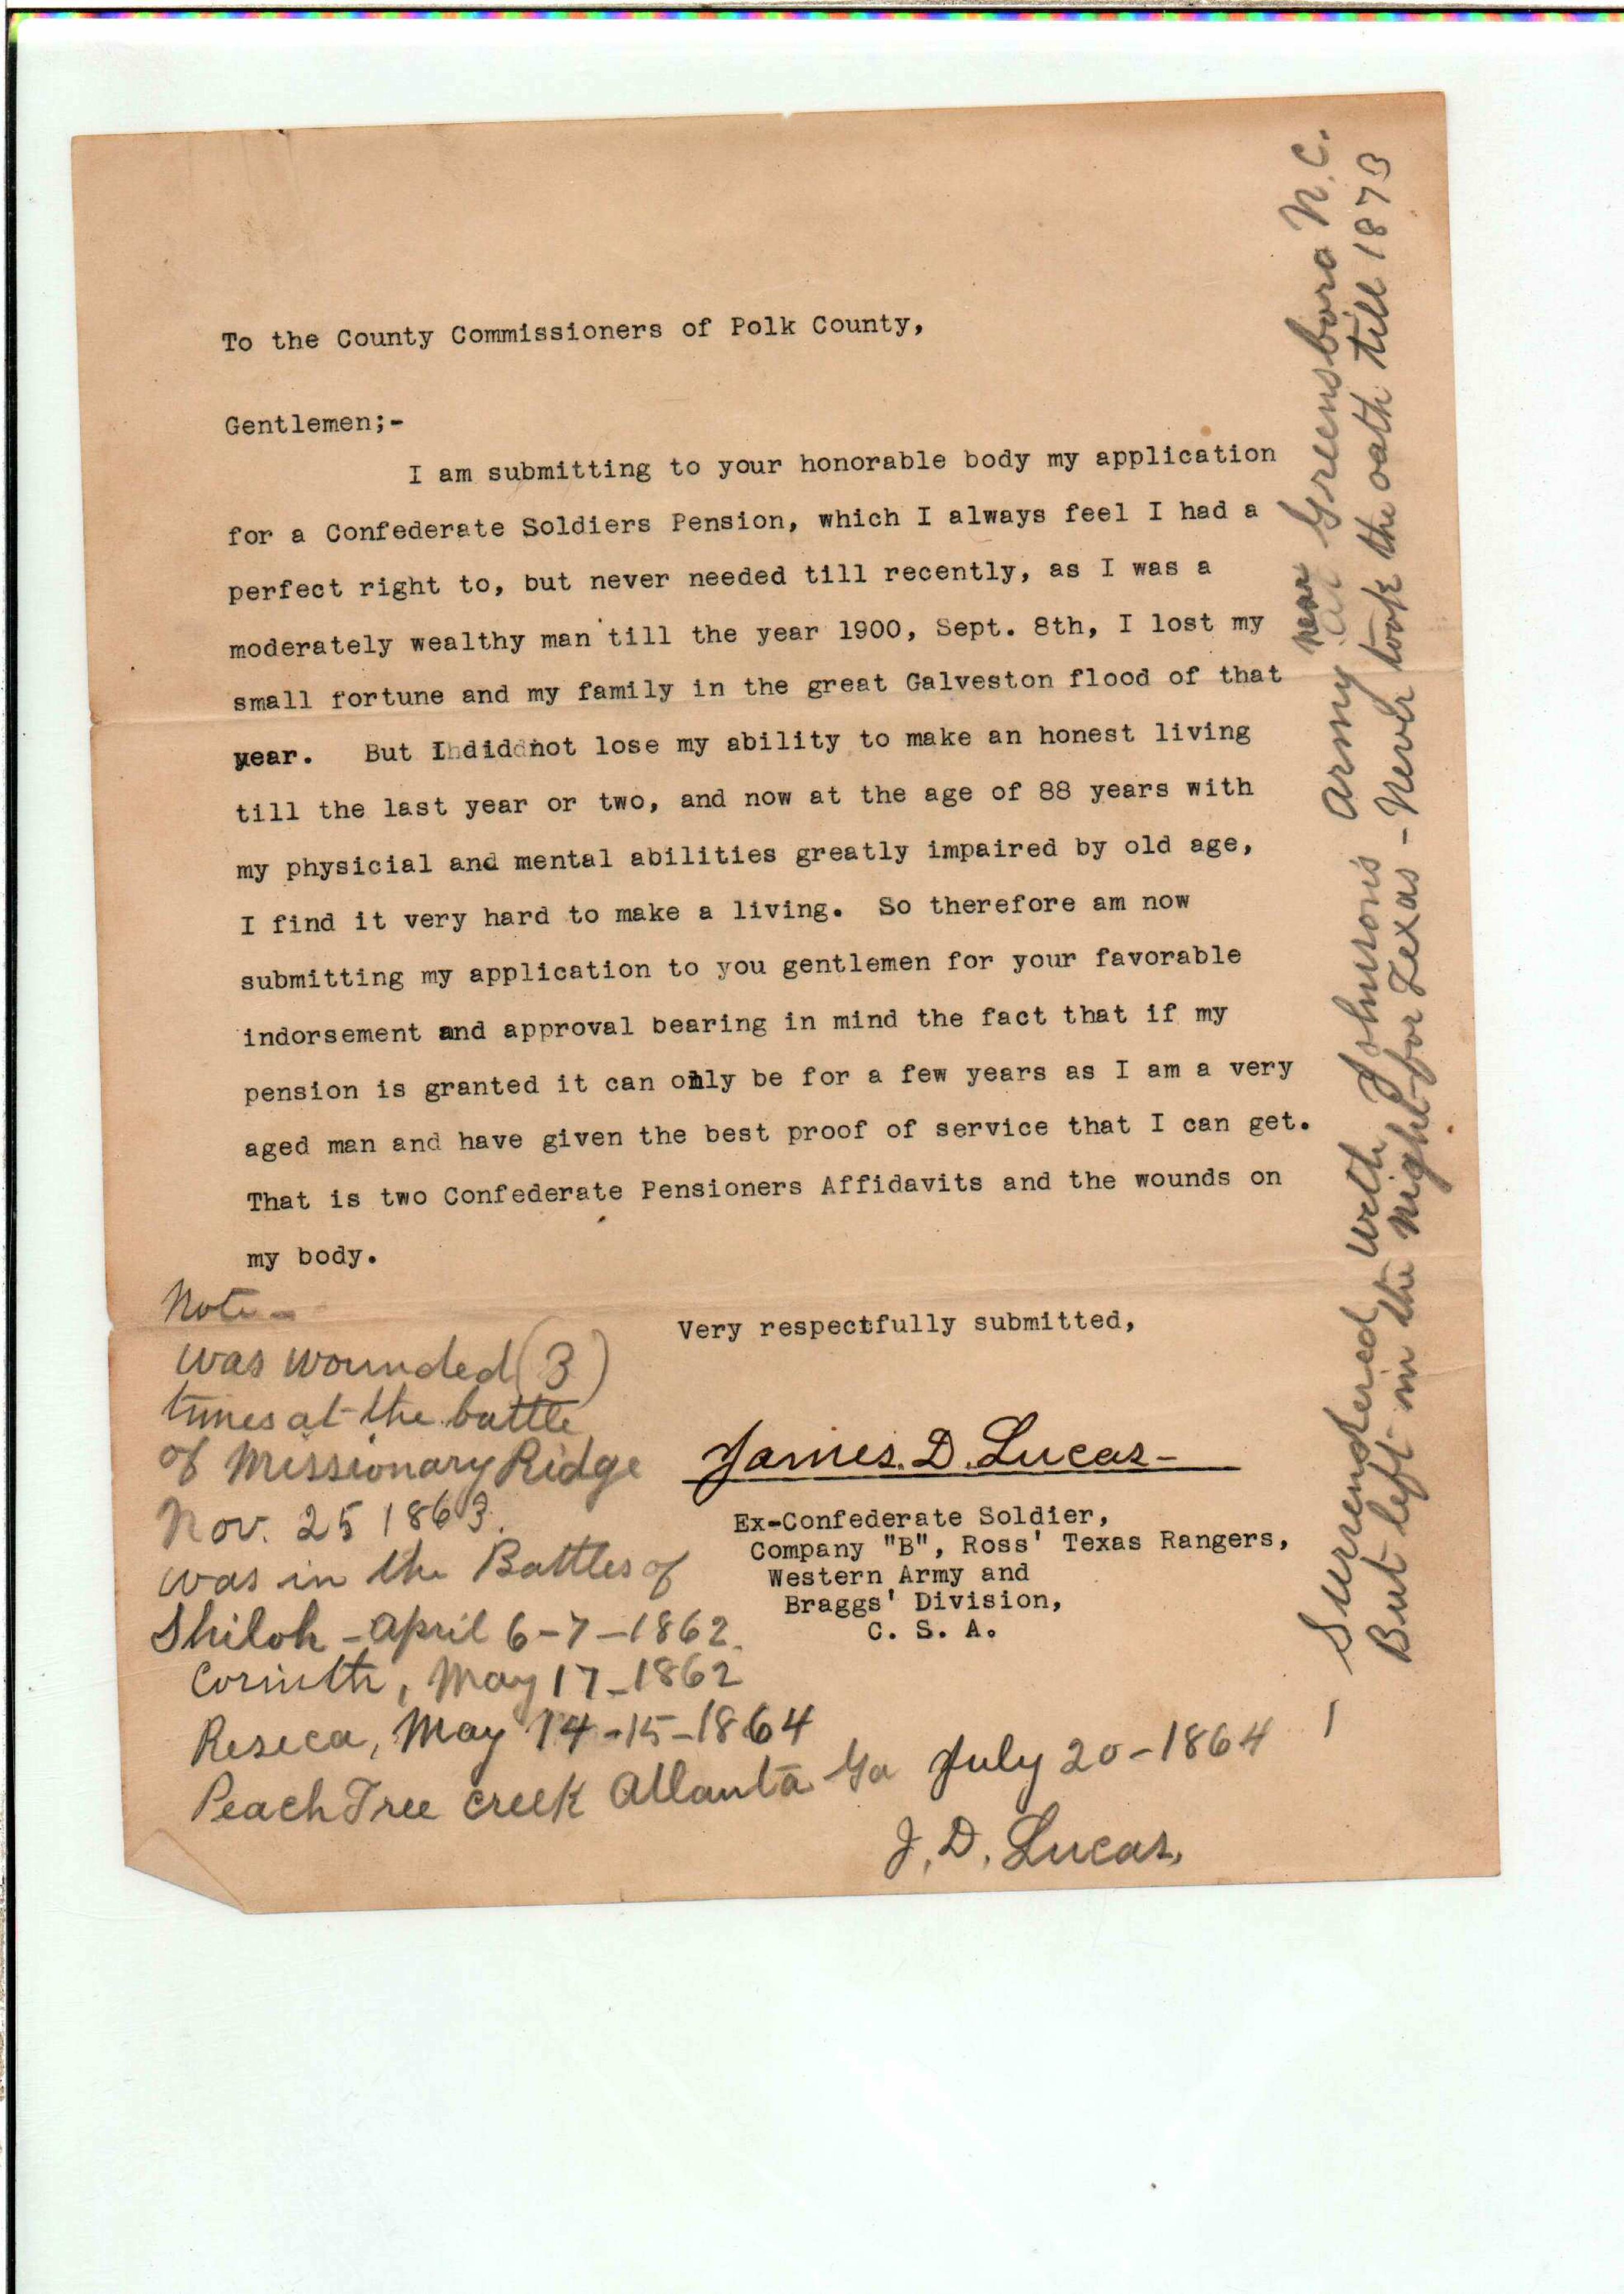 To the County Commissioners of Polk County,
Gentlemen;-
I am submitting to your honorable body my application
for a Confederate Soldiers Pension, which I always feel I had a
perfect right to, but never needed till recently, as I was a
moderately wealthy man till the year 1900, Sept. 8th, I lost my
small fortune and my family in the great Galveston flood of that
year. But I did not lose my ability to make an honest living
till the last year or two, and now at the age of 88 years with
my physicial and mental abilities greatly impaired by old age,
I find it very hard to make a living. So therefore am now
submitting my application to you gentlemen for your favorable
indorsement and approval bearing in mind the fact that if my
pension is granted it can only be for a few years as I am a very
aged man and have given the best proof of service that I can get.
That is two Confederate Pensioners Affidavits and the wounds on
my body.
Very respectfully submitted,
James. D. Lucas-
Ex-Confederate Soldier,
Company "B", Ross' Texas Rangers,
Western Army and
Braggs' Division,
C. S. A.
Note-
was wounded (3)
times at the battle
of Missionary Ridge
Nov. 25 1863.
was in the Battles of
Shiloh - April 6-7-1862.
Corinth, May 17-1862
Reseca, May 14-15-1864
Peach Tree creek Atlanta Ga July 20-1864
J. D. Lucas,
Surrendered with Johnson's Army near Greensboro N.C.
But left in the night for Texas - Never took the oath till 1873